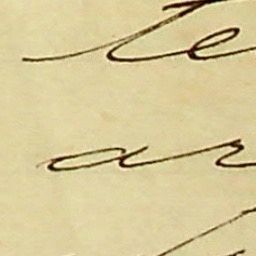 te
ar